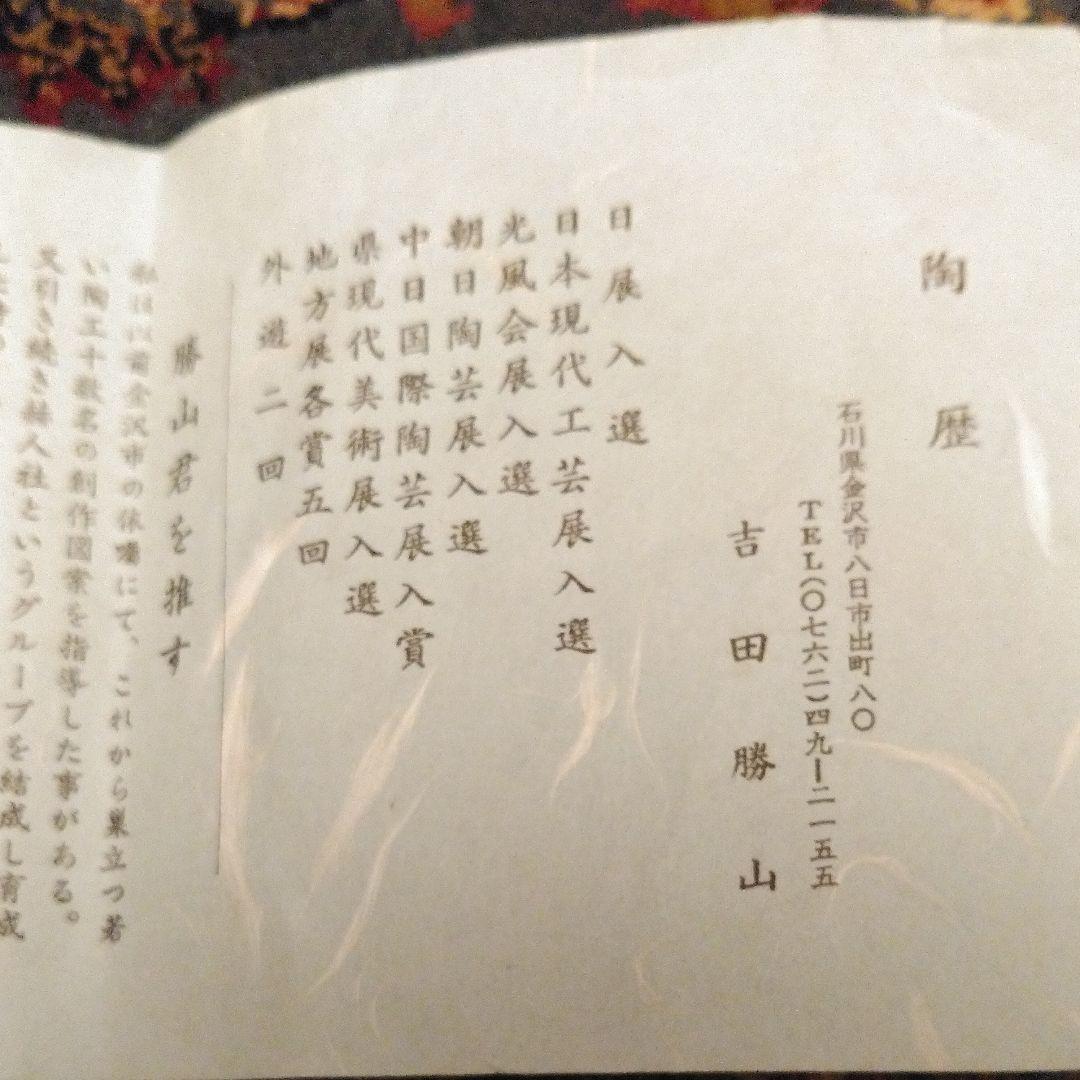 陶歴
石川県金沢市八日市出町八〇
TEL(〇七六二)四九ー二一五五
吉田勝山
日展入選
日本現代工芸展入選
光風会展入選
朝日陶芸展入選
中日国際陶芸展入賞
県現代美術展入選
地方展各賞五回
外遊二回
勝山君を推す
私は以前金沢市の依嘱にて、これから巣立つ若
い陶工十数名の創作図案を指導した事がある。
又引き続き赫人社というグループを結成し育成